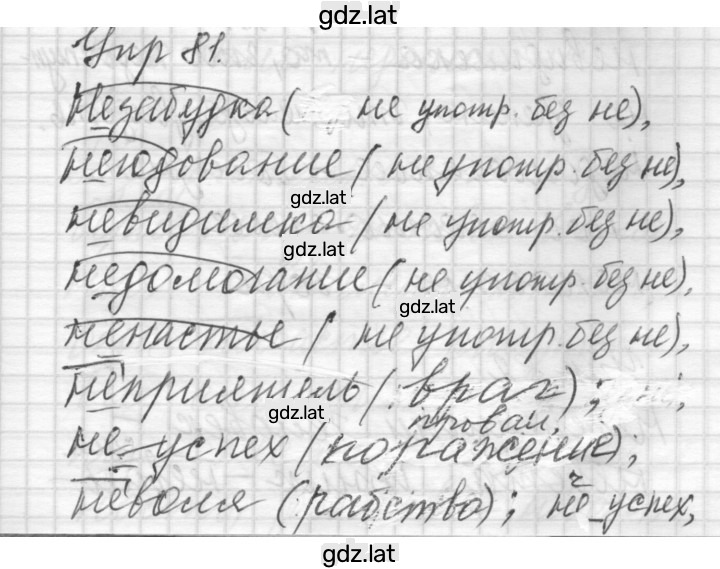 gdz.lat
Упр 81.
Незабудка ( не употр. без не),
негодование ( не употр. без не),
gdz.lat
невидимка ( не употр. без не),
gdz.lat
недомогание ( не употр. без не),
gdz.lat
ненастье ( не употр. без не),
неприятель ( враг);
gdz.lat
провал,
не_успех (поражение);
неволя (рабство); не_успех,
gdz.lat